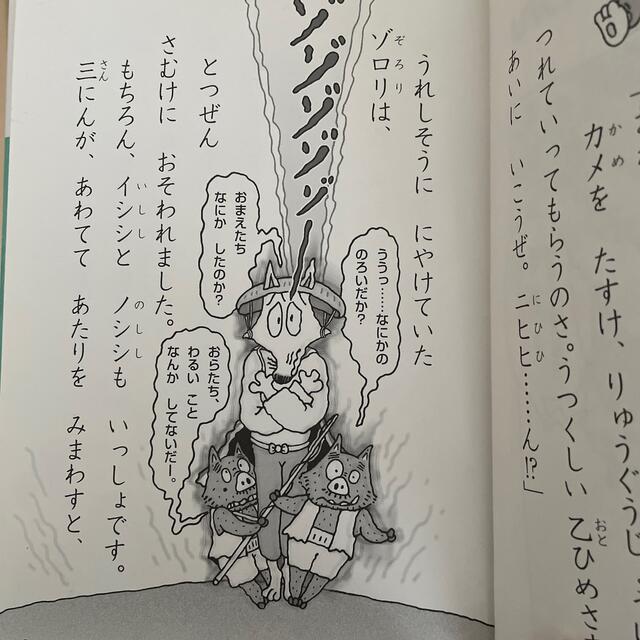 カメを たすけ、りゅうぐうじ
つれていってもらうのさ。うつくしい 乙ひめさ
あいに いこうぜ。ニヒヒ……ん!?」
ゾゾゾゾゾゾー
うれしそうに にやけていた
ゾロリは、
とつぜん
さむけに おそわれました。
もちろん、イシシと ノシシも いっしょです。
三にんが、あわてて あたりを みまわすと、
ううっ……なにかの
のろいだか?
おまえたち
なにか したのか?
おらたち、
わるい こと
なんか してないだー。